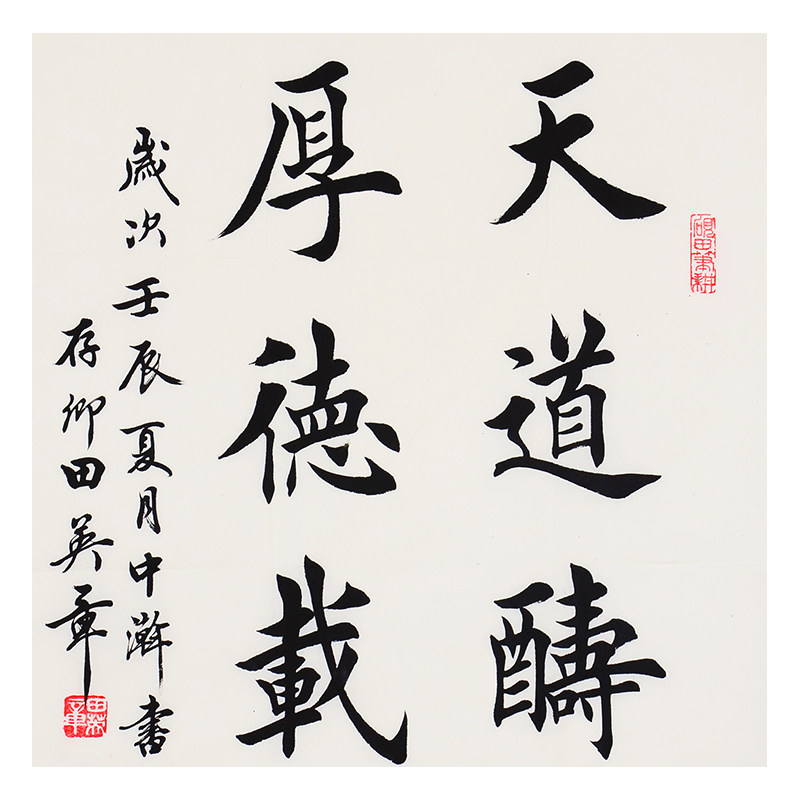 硯田筆耕
天道醻
厚德載
歲次壬辰夏月中澣書
存卿田英章
田英章